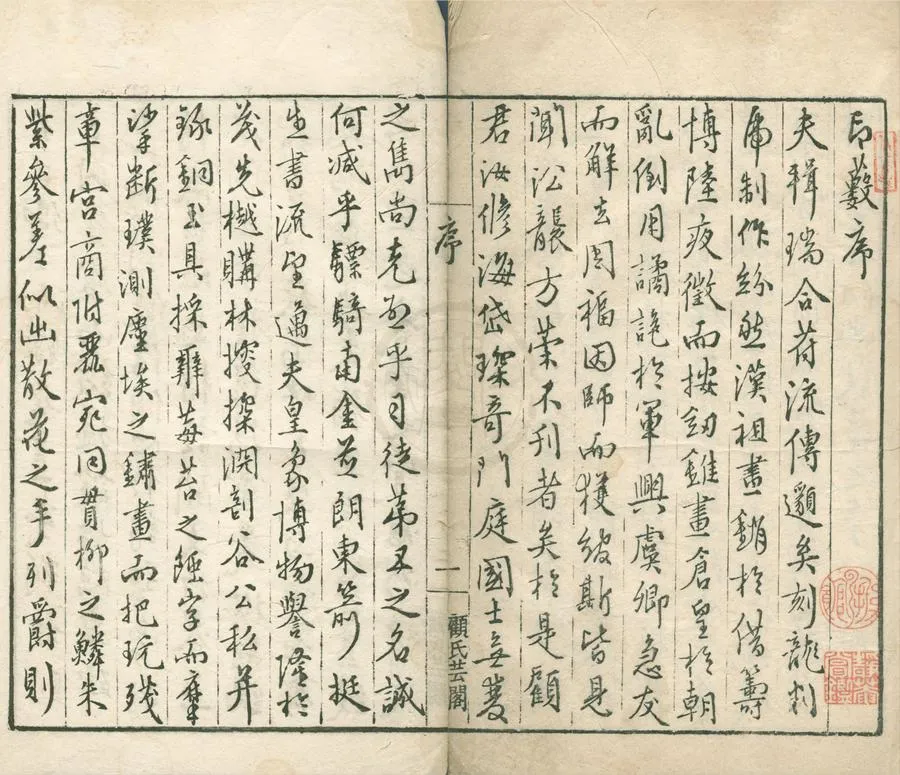 印藪序
夫輯瑞合符流傳邈矣刻龍刻
虎制作紛然漢祖畫銷於借籌
博陸夜徵而按劍雖畫倉皇於朝
亂倒用譎詭於軍興虞卿急友
而解去周福因師而獲紱斯皆見
聞訟襲方策不刊者矣於是顧
君汝修海岱璨奇門庭國士無雙
序
一
顧氏芸閣
之雋尚克
乎司徒第五之名誠
何減乎驃騎南金並朗東箭挺
生書流望邁夫皇象博物譽隆於
茂先樾購林搜探淵剖谷公私并
錄銅玉具採辭莓苔之經字而摩
挲斷璞測塵埃之鏽畫而把玩殘
章宮商附麗宛同貫柳之鱗朱
紫參差似出散花之手列爵則